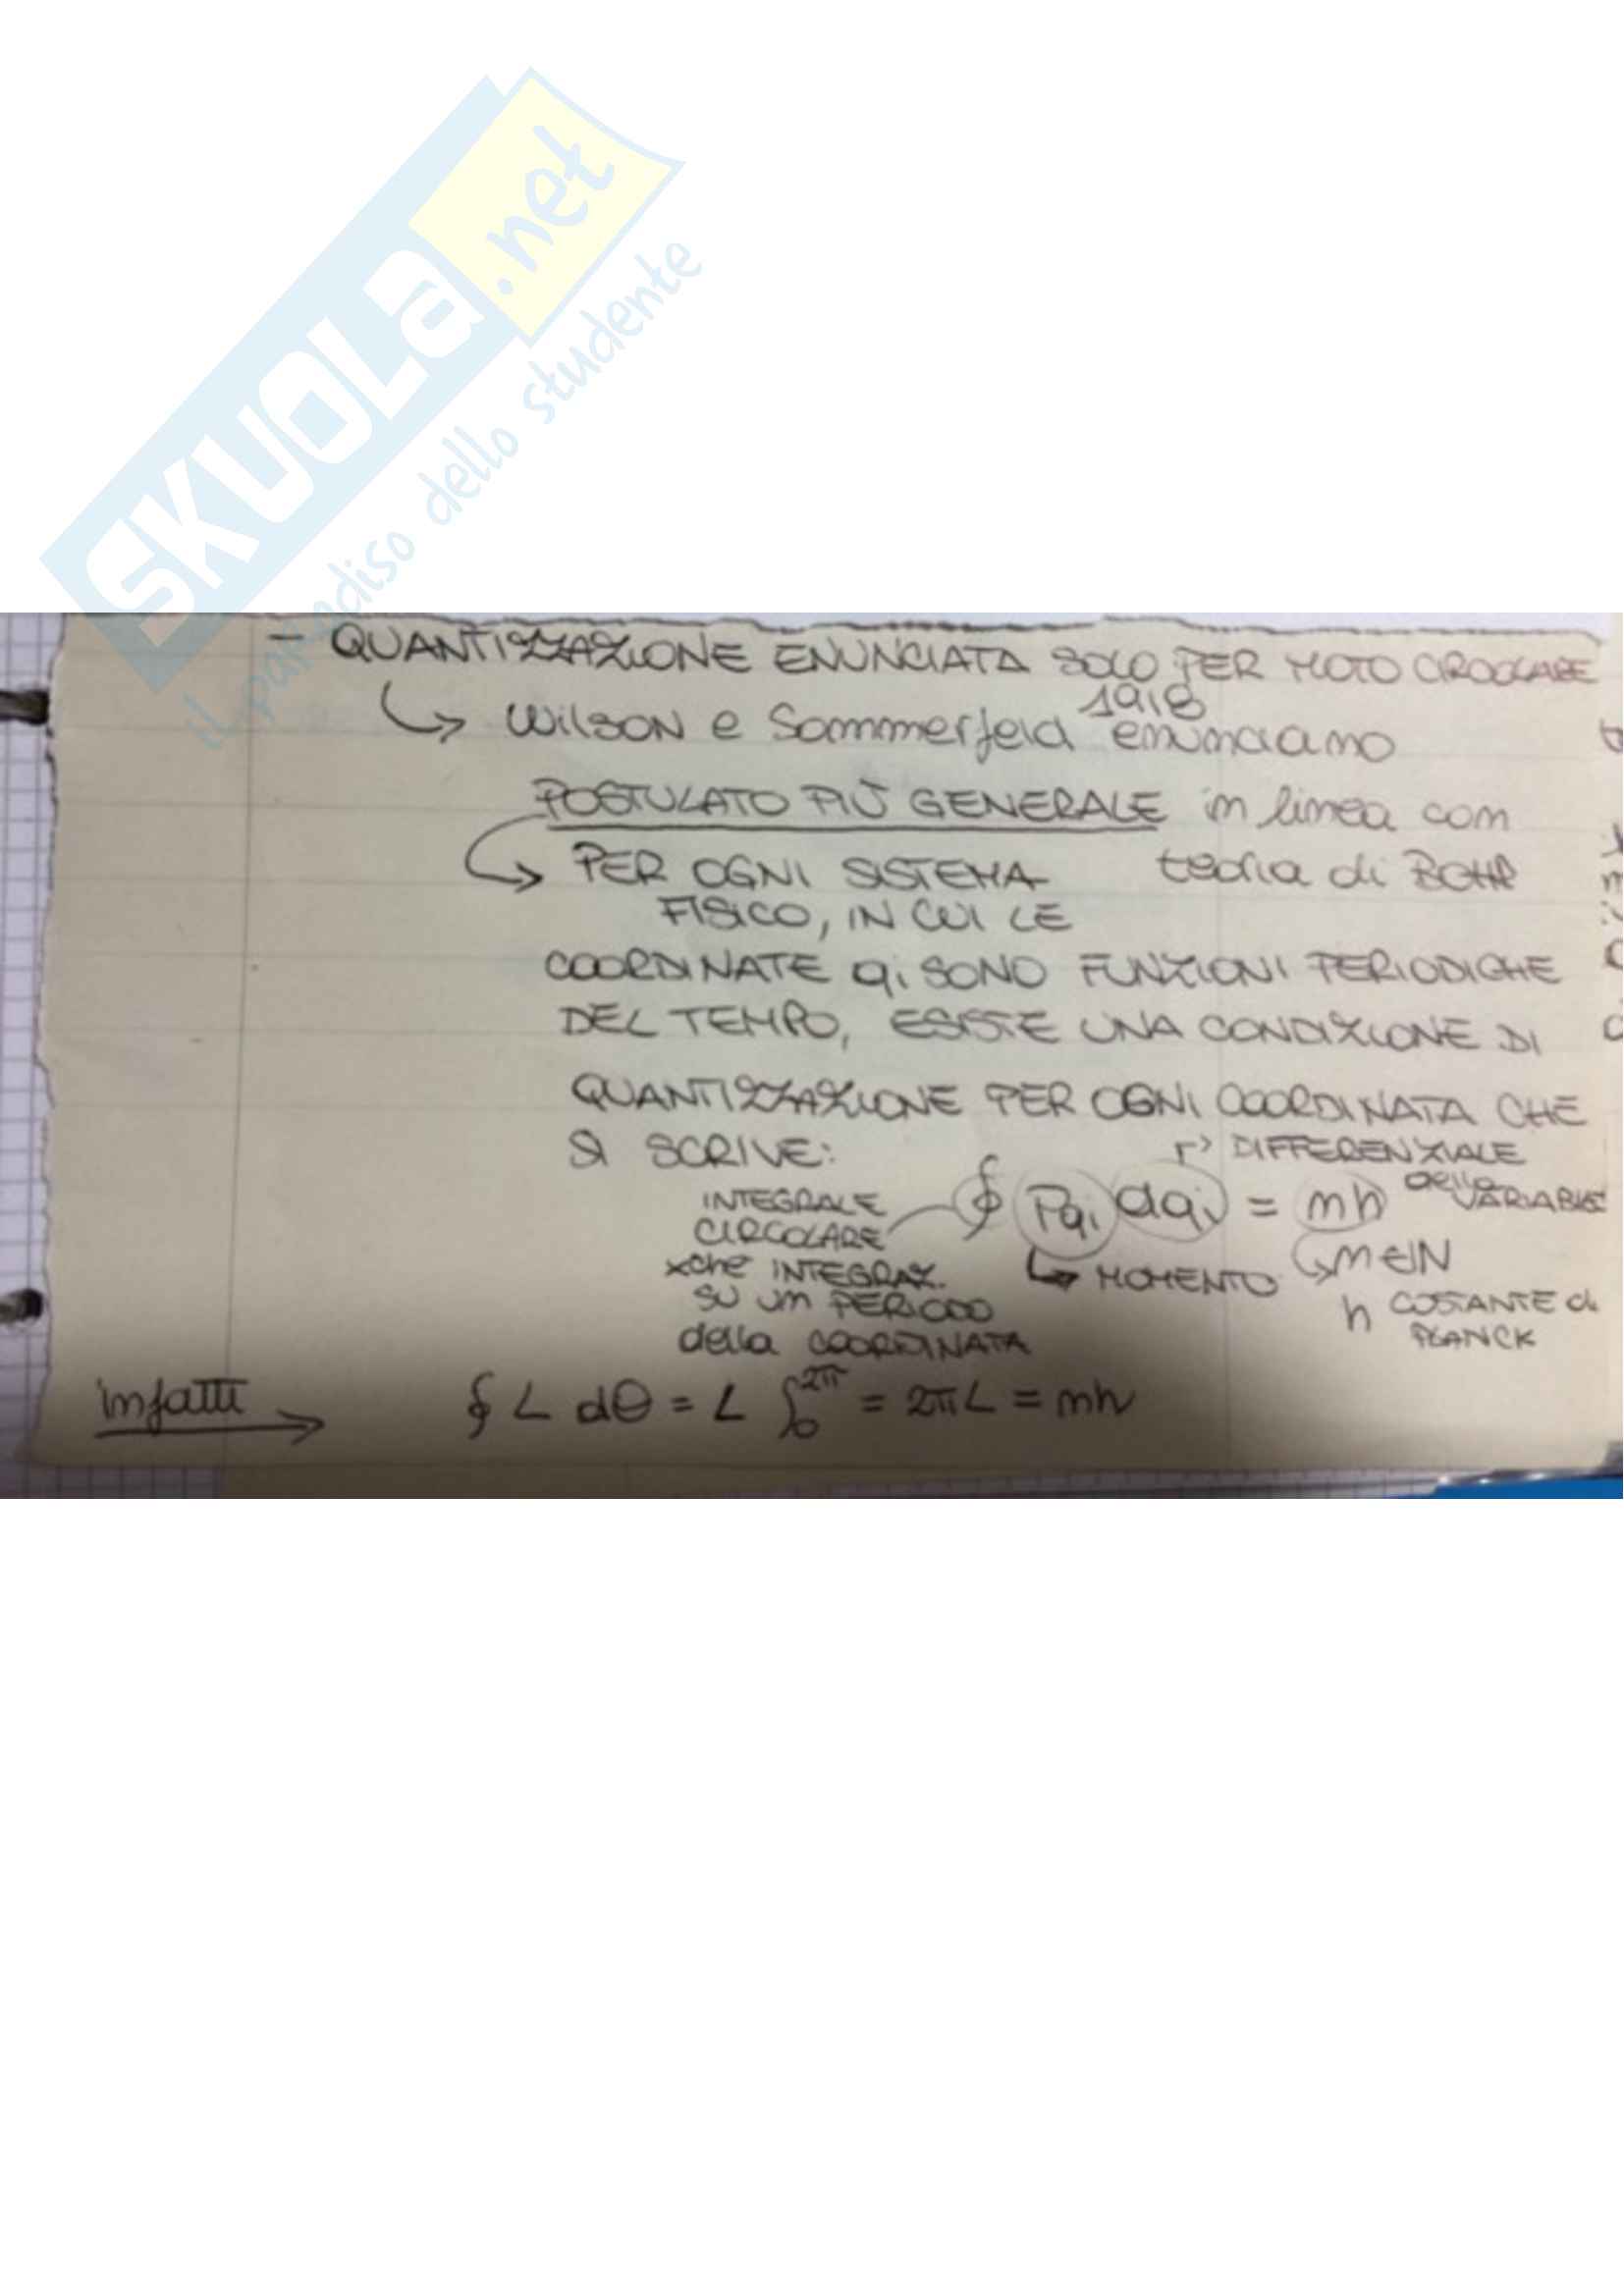 SKUOLA.net
il paradiso dello studente
- QUANTIZZAZIONE ENUNCIATA SOLO PER MOTO CIRCOLARE
1918
↳ Wilson e Sommerfeld enunciano
POSTULATO PIÙ GENERALE in linea con
↳ PER OGNI SISTEMA teoria di BOHR
FISICO, IN CUI LE
COORDINATE qi SONO FUNZIONI PERIODICHE
DEL TEMPO, ESISTE UNA CONDIZIONE DI
QUANTIZZAZIONE PER OGNI COORDINATA CHE
SI SCRIVE: ↱ DIFFERENZIALE
della VARIABILE
INTEGRALE ∮ Pqi dqi = nh
CIRCOLARE
xchè INTEGRAZ. ↳ MOMENTO ↳ n∈N
SU UN PERIODO h COSTANTE di
della COORDINATA PLANCK
infatti → ∮ L dθ = L ∫₀^2π = 2πL = nh